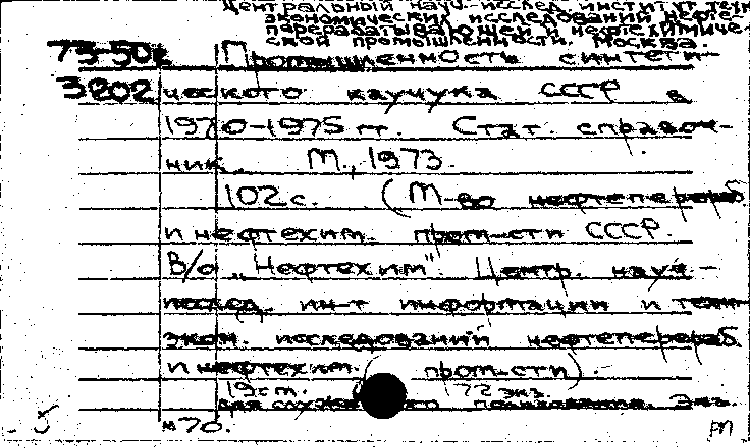 Центральный науч.-исслед. институт техн.
экономических исследований нефте-
перерабатывающей и нефтехимиче-
ской промышленности. Москва.
73-50
3202 Промышленность синтети-
ческого каучука СССР в
1970-1975 гг. Стат. справоч-
ник. М., 1973.
102 с. (М-во нефтеперераб.
и нефтехим. пром-сти СССР.
В/о "Нефтехим". Центр. науч.-
исслед. ин-т информации и техн-
экон. исследований нефтеперераб.
и нефтехим. пром-сти).
19 ст. 172 экз.
Для служебного пользования. Экз.
№ 70.